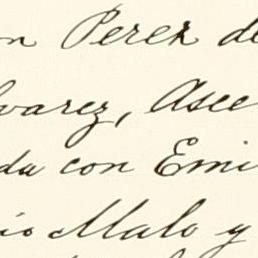 on Perez de
lvarez, Asce
da con Emi
io Malo y